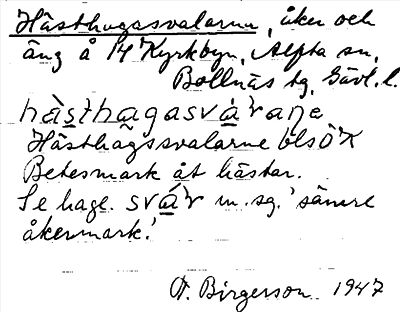 Hästhagasvalarna, åker och
äng å 14 Kyrkbyn, Alfta sn,
Bollnäs tg, Gävl. l.
hàsthagasvárane
Hästhagssvalarne blsÖK
Betesmark åt hästar.
Se hage. svár m. sg. 'sämre
åkermark.'
A. Birgerson 1947